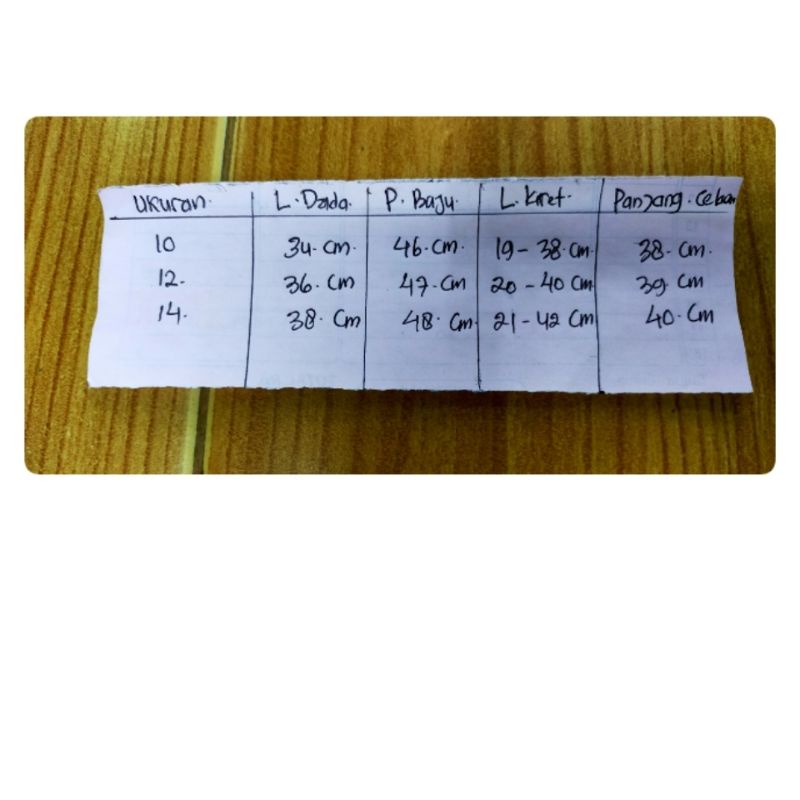 Ukuran. L. Dada. P. Baju. L. Karet. Panjang.
10 34. cm. 46. cm. 19 - 38. cm. 38. cm.
12. 36. cm 47. cm 20 - 40 cm 39. cm
14. 38. cm 48. cm. 21 - 42 cm 40. cm